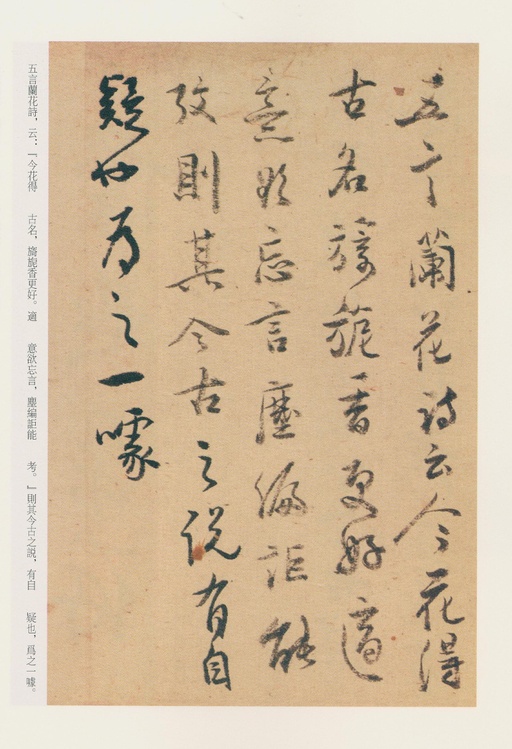 五言蘭花詩云今花得
古名旖旎香更好適
意欲忘言塵編詎能
攷則其今古之説有自
疑也爲之一噱
五言蘭花詩，云：『今花得　古名，旖旎香更好。適　意欲忘言，塵編詎能　考。』則其今古之説，有自　疑也，爲之一噱。